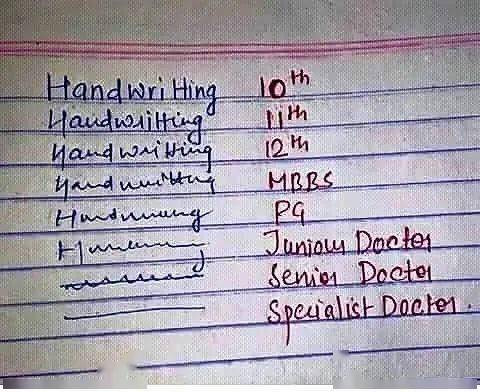 Handwriting 10th
Handwriting 11th
Handwriting 12th
Handwriting MBBS
PG
Juniour Doctor
Senior Doctor
Specialist Doctor.